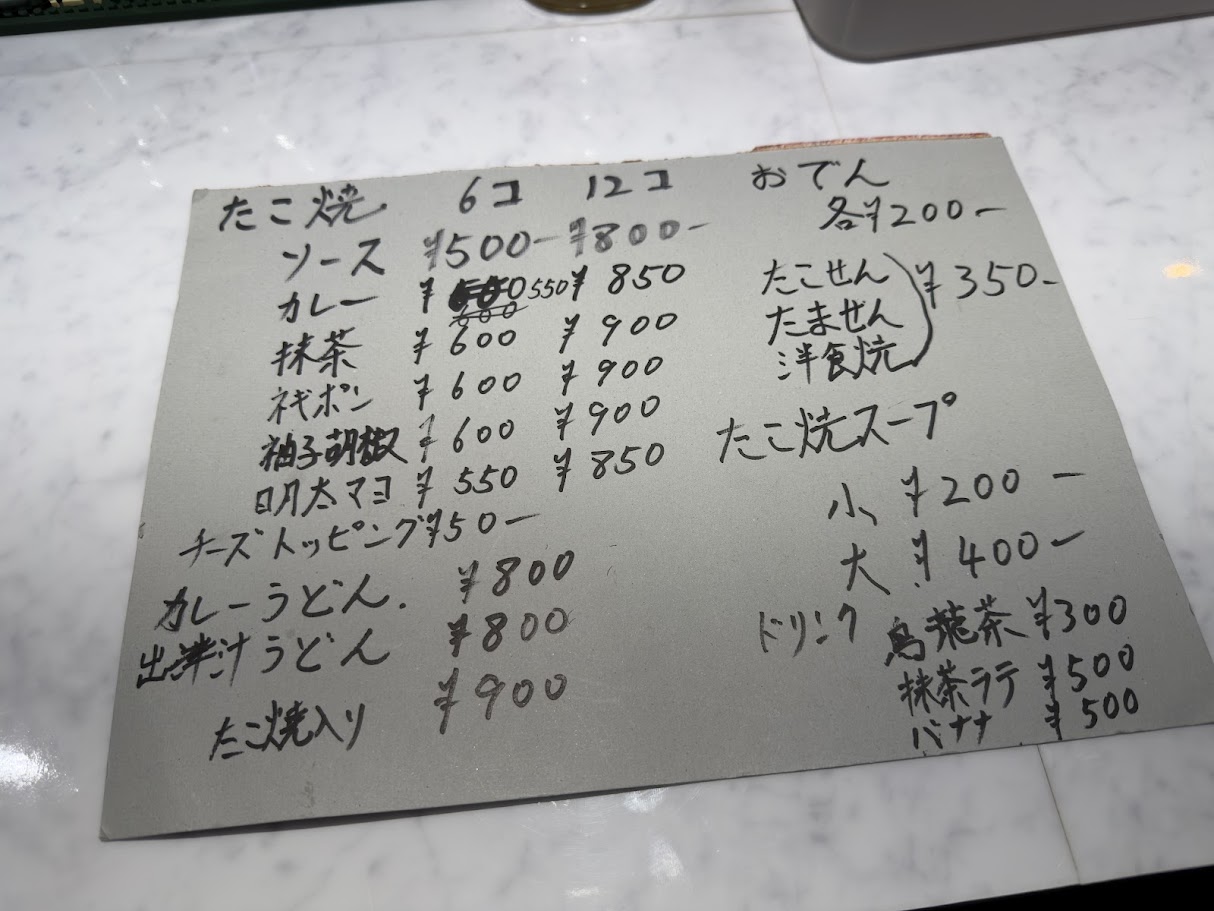 たこ焼 6コ 12コ
ソース ¥500- ¥800-
カレー ¥ 550 ¥850
抹茶 ¥600 ¥900
ネギポン ¥600 ¥900
柚子胡椒 ¥600 ¥900
明太マヨ ¥550 ¥850
チーズトッピング ¥50-
カレーうどん. ¥800
出汁うどん ¥800
たこ焼入り ¥900
おでん
各¥200-
たこせん
たません
洋食焼
¥350-
たこ焼スープ
小 ¥200-
大 ¥400-
ドリンク 烏龍茶 ¥300
抹茶ラテ ¥500
バナナ ¥500